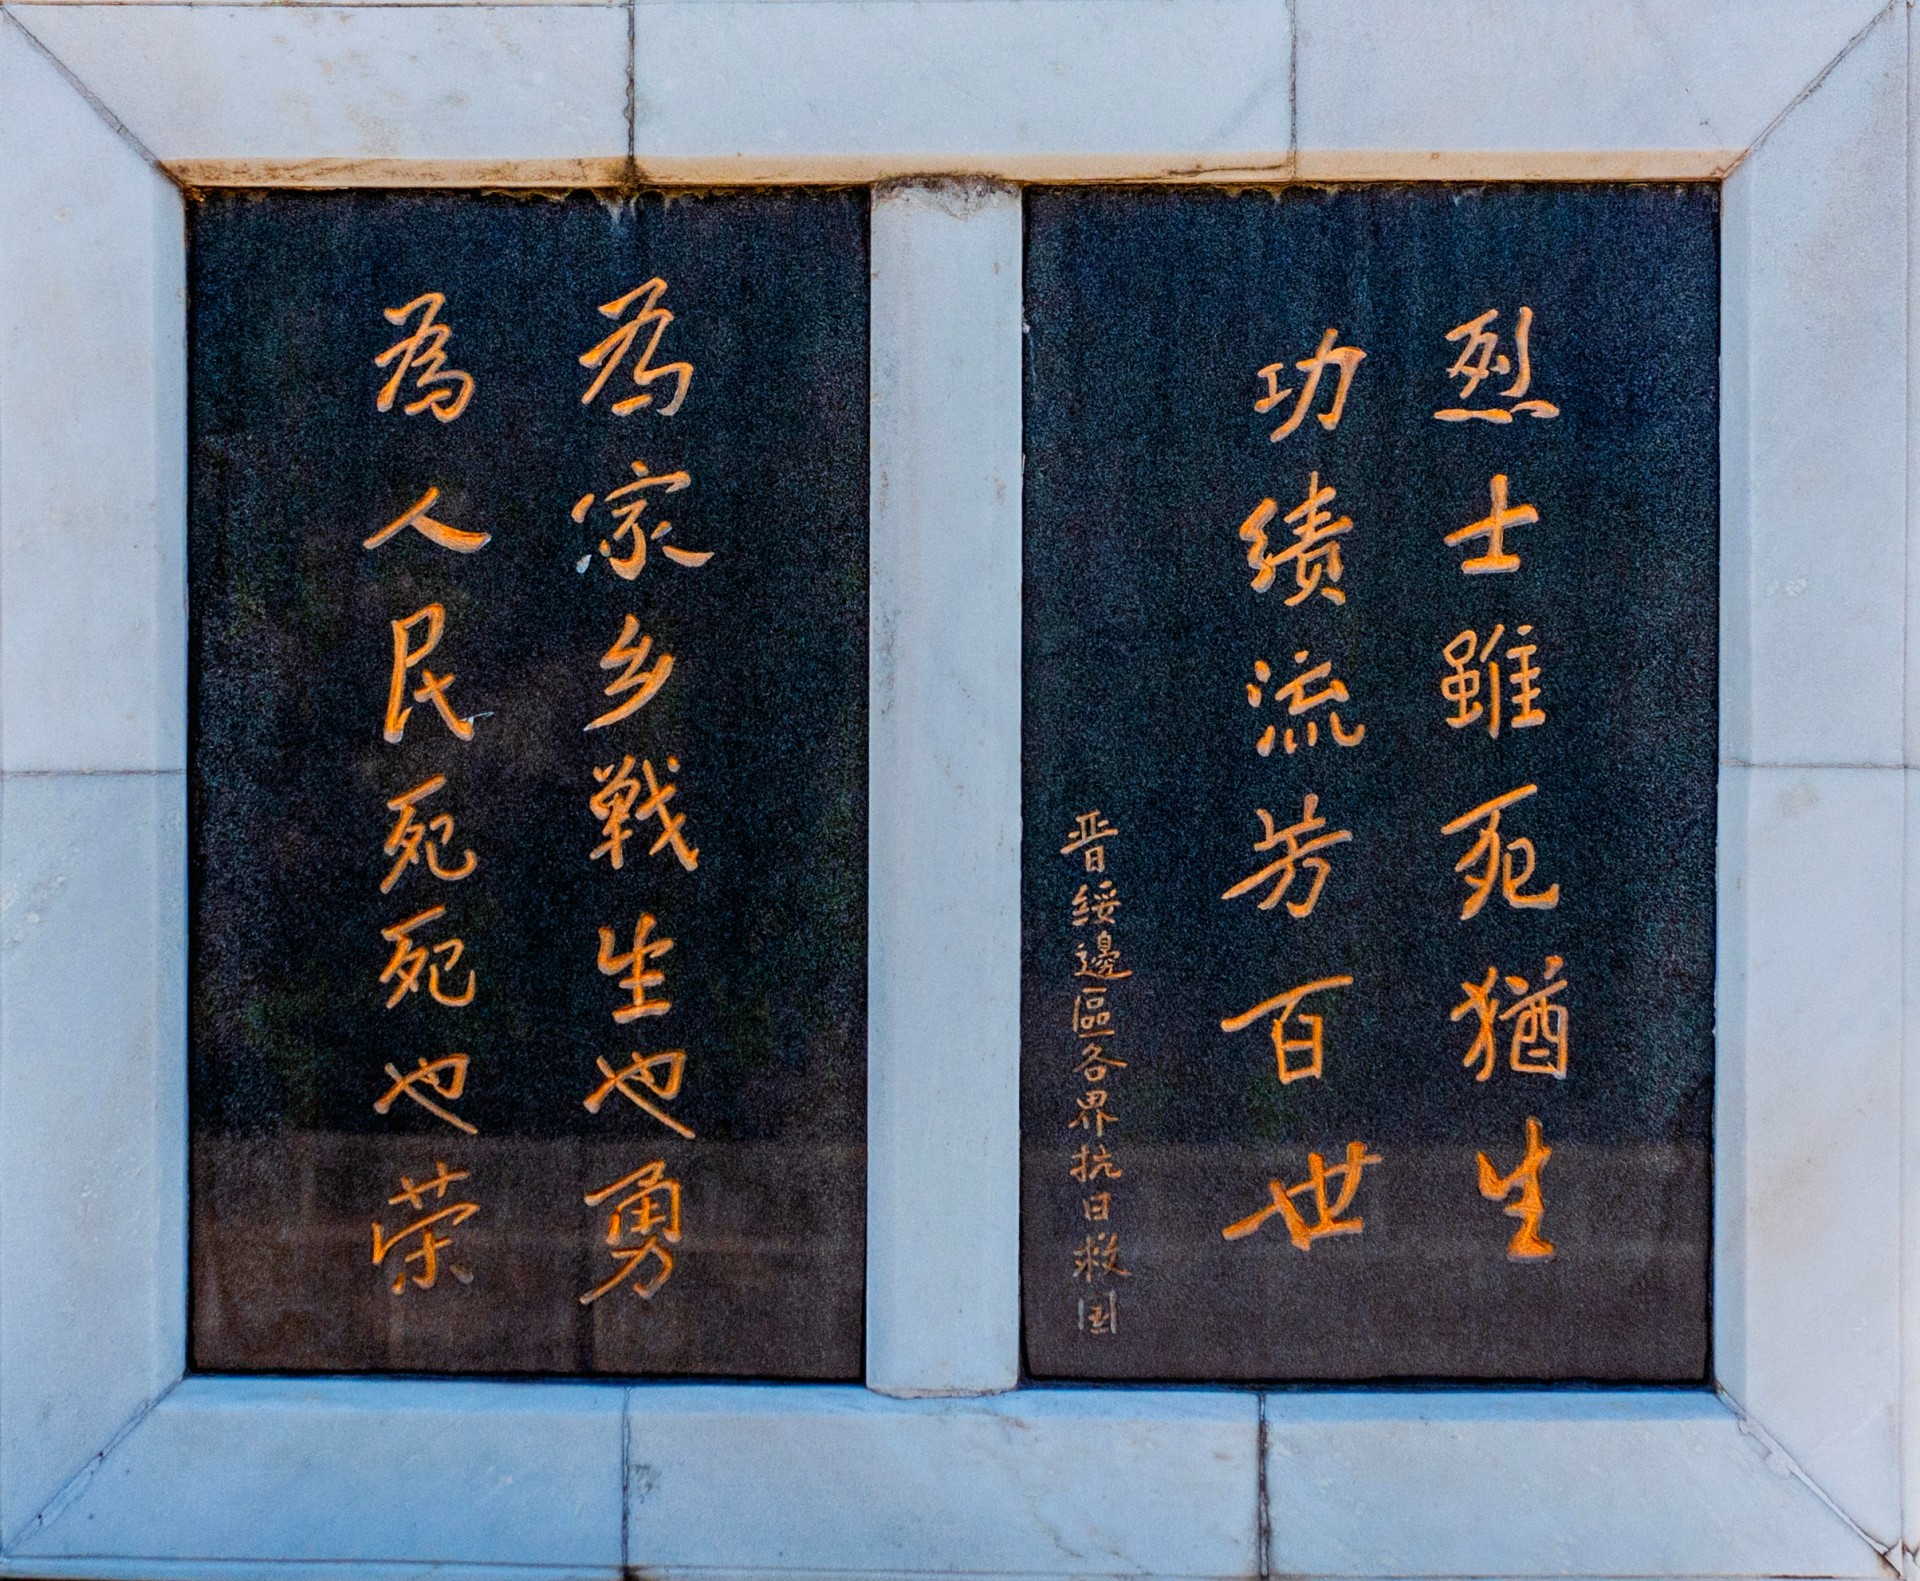 烈士雖死猶生
功績流芳百世
晋綏邊區各界抗日救国
為家乡戦生也勇
為人民死死也荣